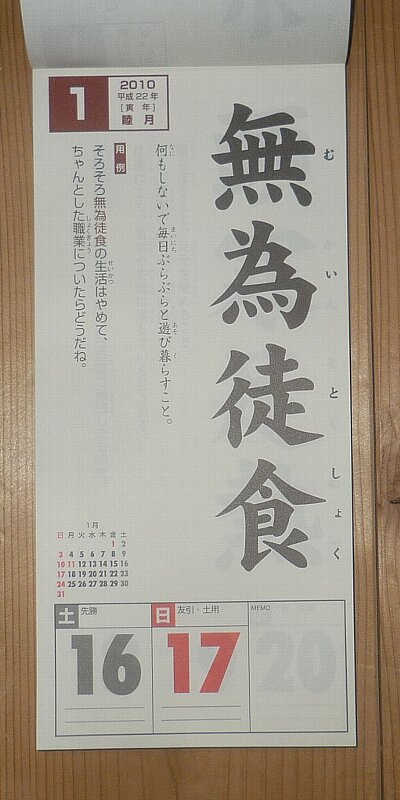 1
2010
平成22年
[寅年]
睦月
無為徒食
むいとしょく
何もしないで毎日ぶらぶらと遊び暮らすこと。
なに
まいにち
あそ
く
用例
そろそろ無為徒食の生活はやめて、
せいかつ
ちゃんとした職業についたらどうだね。
しょくぎょう
1月
日 月 火 水 木 金 土
1 2
3 4 5 6 7 8 9
10 11 12 13 14 15 16
17 18 19 20 21 22 23
24 25 26 27 28 29 30
31
土 先勝
16
日 友引・土用
17
MEMO
20